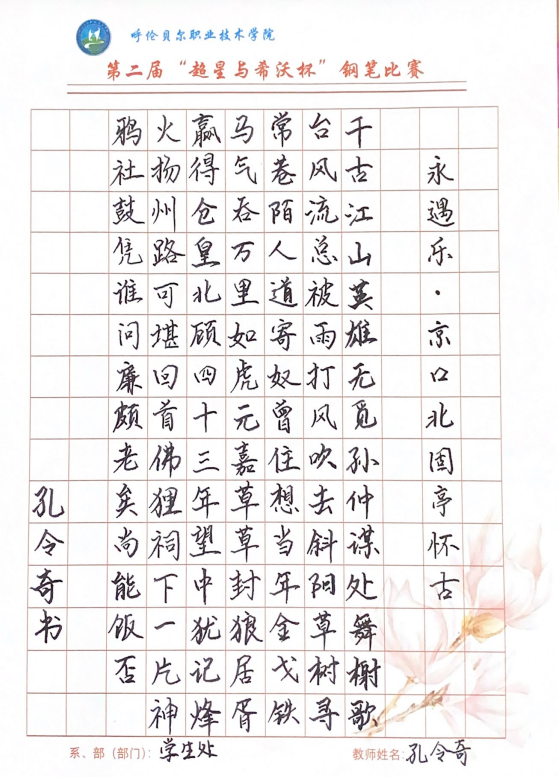 呼伦贝尔职业技术学院
第二届“超星与希沃杯”钢笔比赛
永遇乐·京口北固亭怀古
千古江山英雄无觅孙仲谋处舞榭歌
台风流总被雨打风吹去斜阳草树寻
常巷陌人道寄奴曾住想当年金戈铁
马气吞万里如虎元嘉草草封狼居胥
赢得仓皇北顾四十三年望中犹记烽
火扬州路可堪回首佛狸祠下一片神
鸦社鼓凭谁问廉颇老矣尚能饭否
孔令奇书
系、部（部门）：学生处
教师姓名：孔令奇